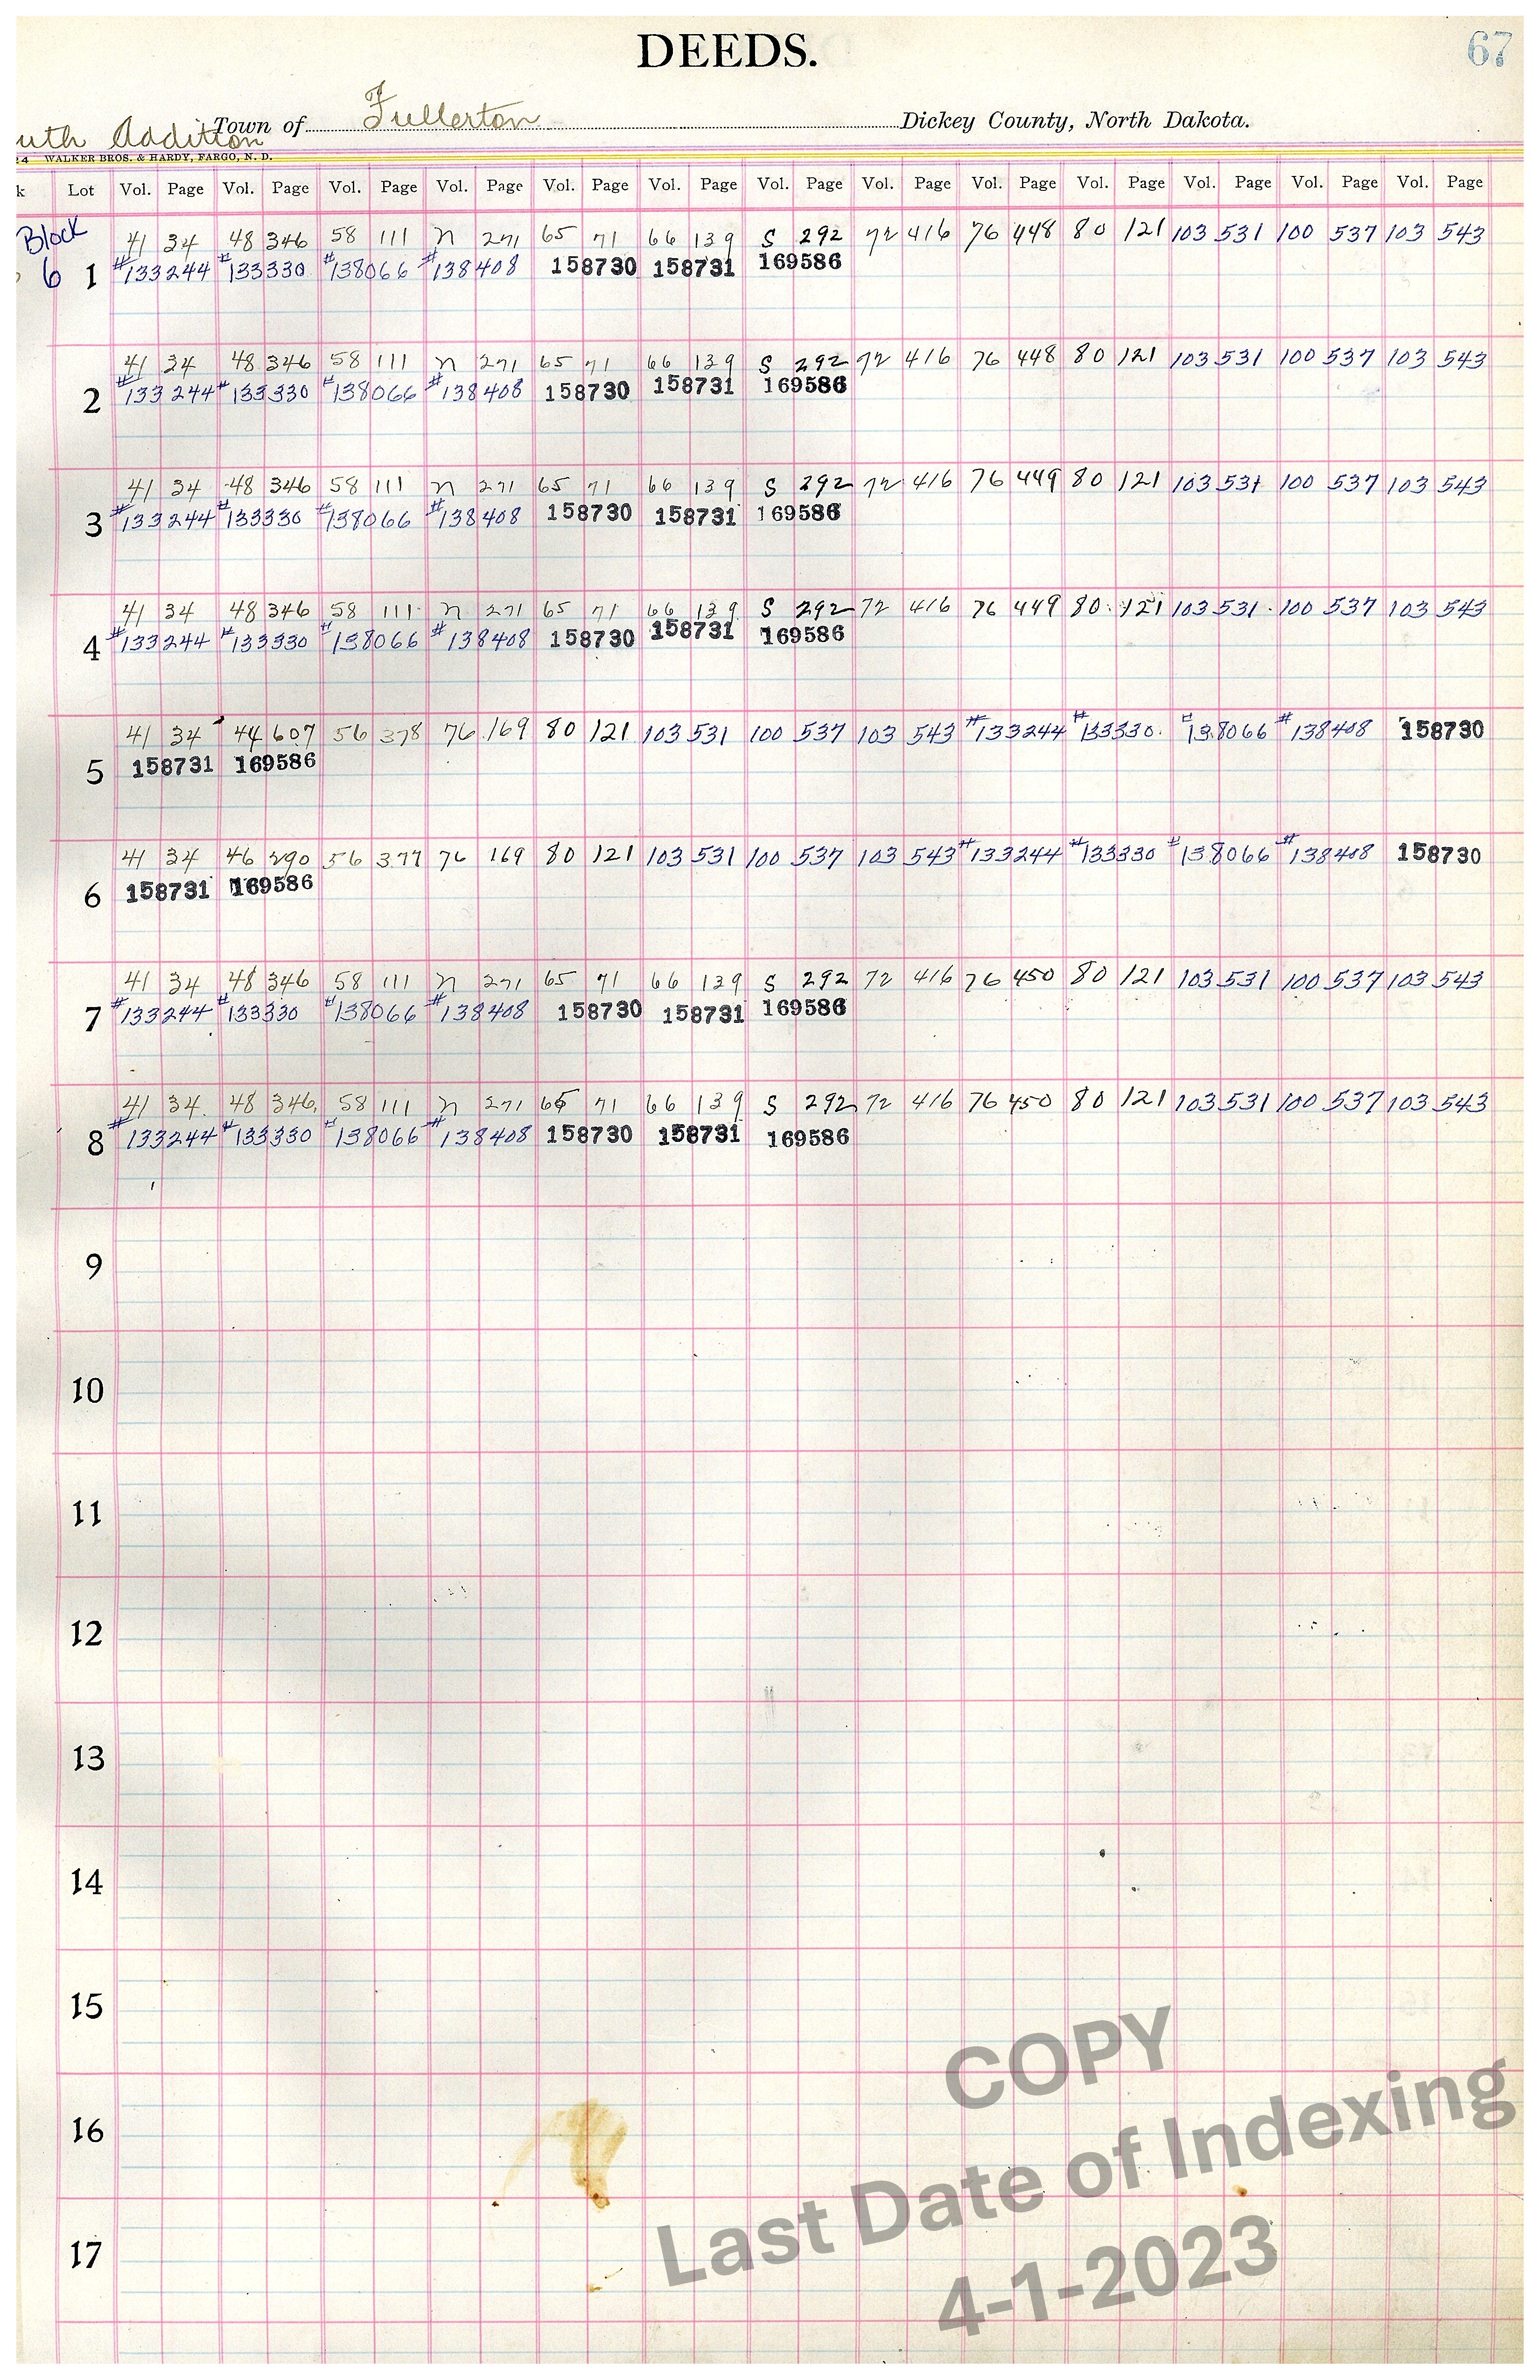 DEEDS.
67
uth Addition Town of Fullerton Dickey County, North Dakota.
24 WALKER BROS. & HARDY, FARGO, N. D.
k Lot Vol. Page Vol. Page Vol. Page Vol. Page Vol. Page Vol. Page Vol. Page Vol. Page Vol. Page Vol. Page Vol. Page Vol. Page Vol. Page
Block 41 34 48 346 58 111 N 271 65 71 66 139 S 292 72 416 76 448 80 121 103 531 100 537 103 543
6 1 #133244 #133330 #138066 #138408 158730 158731 169586
41 34 48 346 58 111 N 271 65 71 66 139 S 292 72 416 76 448 80 121 103 531 100 537 103 543
2 #133244 #133330 #138066 #138408 158730 158731 169586
41 34 48 346 58 111 N 271 65 71 66 139 S 292 72 416 76 449 80 121 103 531 100 537 103 543
3 #133244 #133330 #138066 #138408 158730 158731 169586
41 34 48 346 58 111 N 271 65 71 66 139 S 292 72 416 76 449 80 121 103 531 100 537 103 543
4 #133244 #133330 #138066 #138408 158730 158731 169586
41 34 44 607 56 378 76 169 80 121 103 531 100 537 103 543 #133244 #133330 #138066 #138408 158730
5 158731 169586
41 34 46 290 56 377 76 169 80 121 103 531 100 537 103 543 #133244 #133330 #138066 #138408 158730
6 158731 169586
41 34 48 346 58 111 N 271 65 71 66 139 S 292 72 416 76 450 80 121 103 531 100 537 103 543
7 #133244 #133330 #138066 #138408 158730 158731 169586
41 34 48 346 58 111 N 271 65 71 66 139 S 292 72 416 76 450 80 121 103 531 100 537 103 543
8 #133244 #133330 #138066 #138408 158730 158731 169586
9
10
11
12
13
14
15
16
17
COPY
Last Date of Indexing
4-1-2023